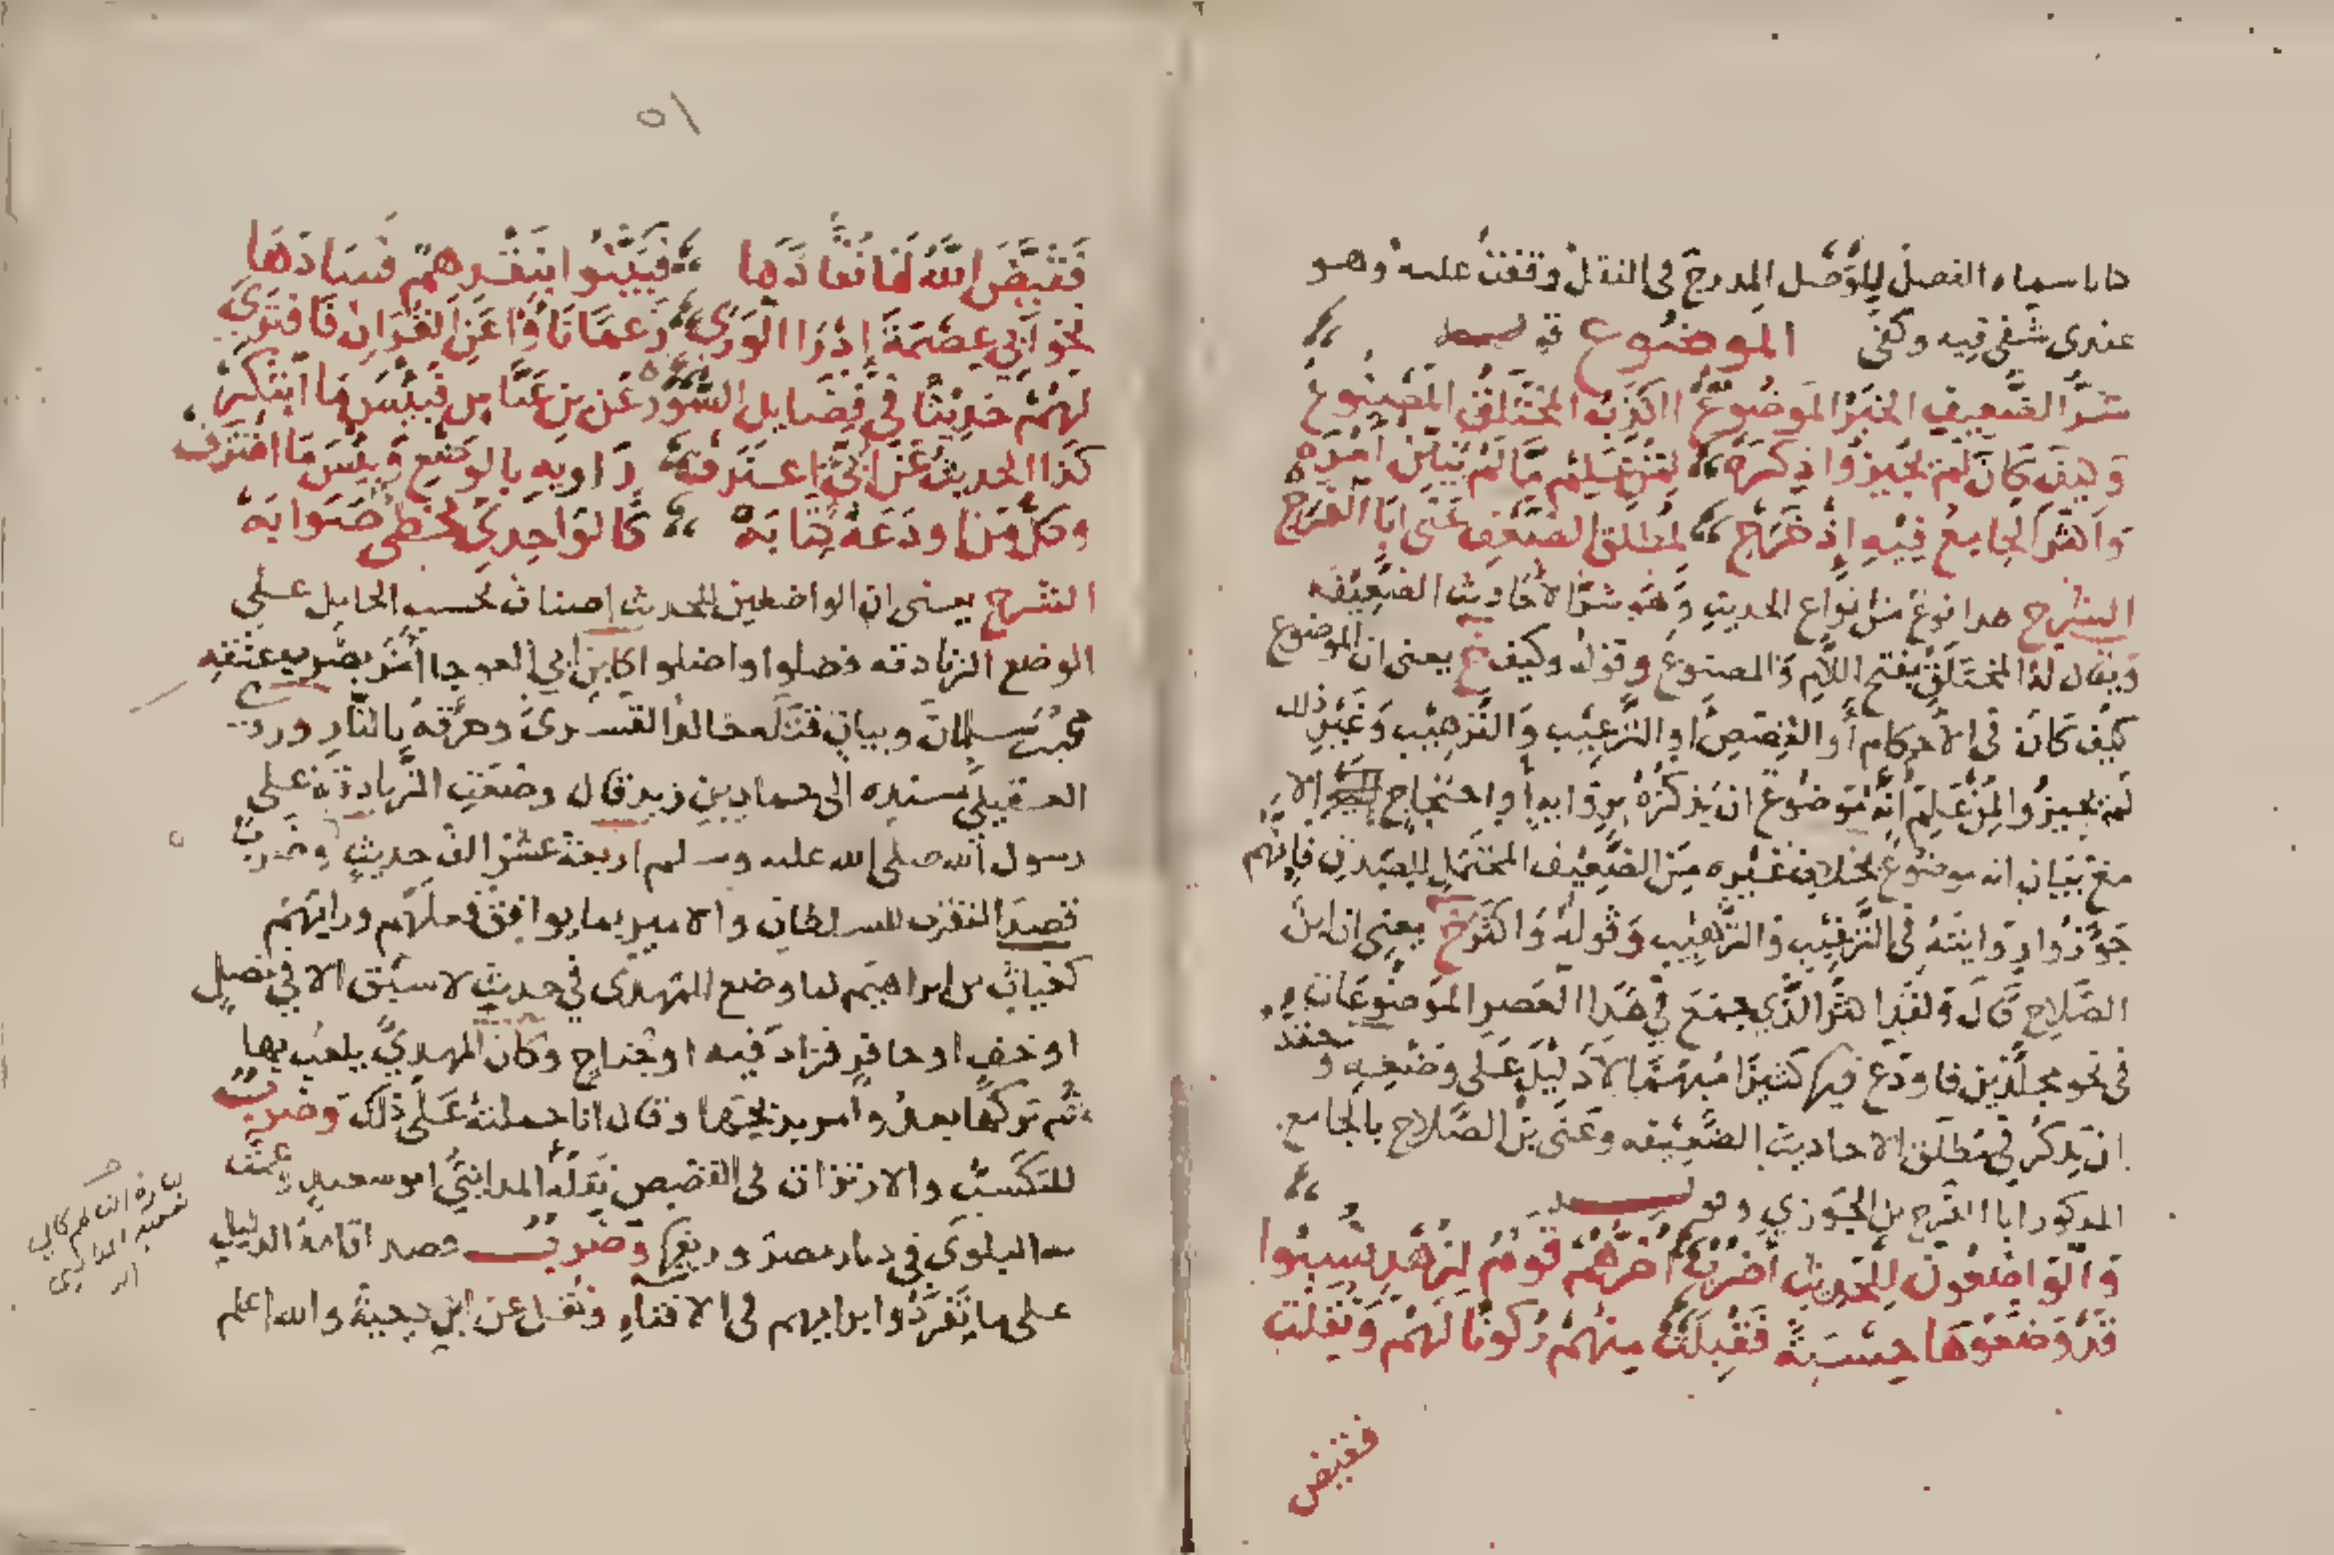 ماباسماه الفصل للوصل المدرج في النقل وقفت عليه وهو
عندى شفى فيه وكفى الموضوع قوله
شر الضعيف الخبر الموضوع الكذب المختلق المصنوع
وكيف كان لم يجيزوا ذكره لمن علم ما لم يبين امره
واكثر الجامع فيه اذ خرج لمطلق الضعف عنى ابا الفرج
الشرح هذا نوع من انواع الحديث وهو شر الاحاديث الضعيفه
ويقال له المختلق بفتح اللام والمصنوع وقوله وكيف يعنى ان الموضوع
كيف كان في الاحكام أو القصص او الترغيب والترهيب وغير ذلك
لم يجيزوا لمن علم انه موضوع ان يذكره برواية أو احتجاج الا
مع بيان انه موضوع بخلاف غيره من الضعيف المحتمل للصدق فانهم
جوزوا روايته في الترغيب والترهيب وقوله واكثر يعنى ان ابن
الصلاح قال ولقد اكثر الذي جمع في هذا العصر الموضوعات
في نحو مجلدين فاودع فيها كثيرا منهما لا دليل على وضعه و حقه
ان يذكر في مطلق الاحاديث الضعيفه وعنى بن الصلاح بالجامع
المذكور ابا الفرج بن الجوزي وهو
والواضعون للحديث أضرب أضرهم قوم لزهد نسبوا
قد وضعوها حسبة فقبلت منهم ركونا لهم ونقلت
فقيض
٥١
فقيض الله لها نقادها فبينوا بنقدهم فسادها
نحو أبي عصمة إذ رأى الورى زعما ناوا عن القران فافترى
لهم حديثا في فضايل السور عن بن عباس فبئس ما ابتكر
كذا الحديث عن أبي اعترف راويه بالوضع وبئس ما اقترف
وكل من اودعه كتابه كالواحدي مخطى صوابه
الشرح يعنى ان الواضعين للحديث اصناف بحسب الحامل على
الوضع الزنادقه فضلوا واضلوا كابن أبي العوجا أمر بضرب عنقه
محمد بن سليمان وبيان قتله خالد القسرى وحرقه بالنار ورو
العقيلي بسنده الى حماد بن زيد قال وضعت الزنادقة على
رسول الله صلى الله عليه وسلم اربعة عشر الف حديث وضرب
قصد التقرب للسلطان والامير بما يوافق فعلهم ورايهم
كغياث بن ابراهيم لما وضع للمهدى في حديث لا سبق الا في نصل
او خف او حافر فزاد فيه او جناح وكان المهدي يلعب بها
ثم تركها بعد وأمر بذبحها وقال انا حملته على ذلك وضرب
للتكسب والارتزاق في القصص نقله المدايني ابو سعيد
البلوي في ديار مصر وضرب قصد اقامة الدليل
على ما تفردوا برايهم في الافتاء ونقل عن ابن دحية والله اعلم